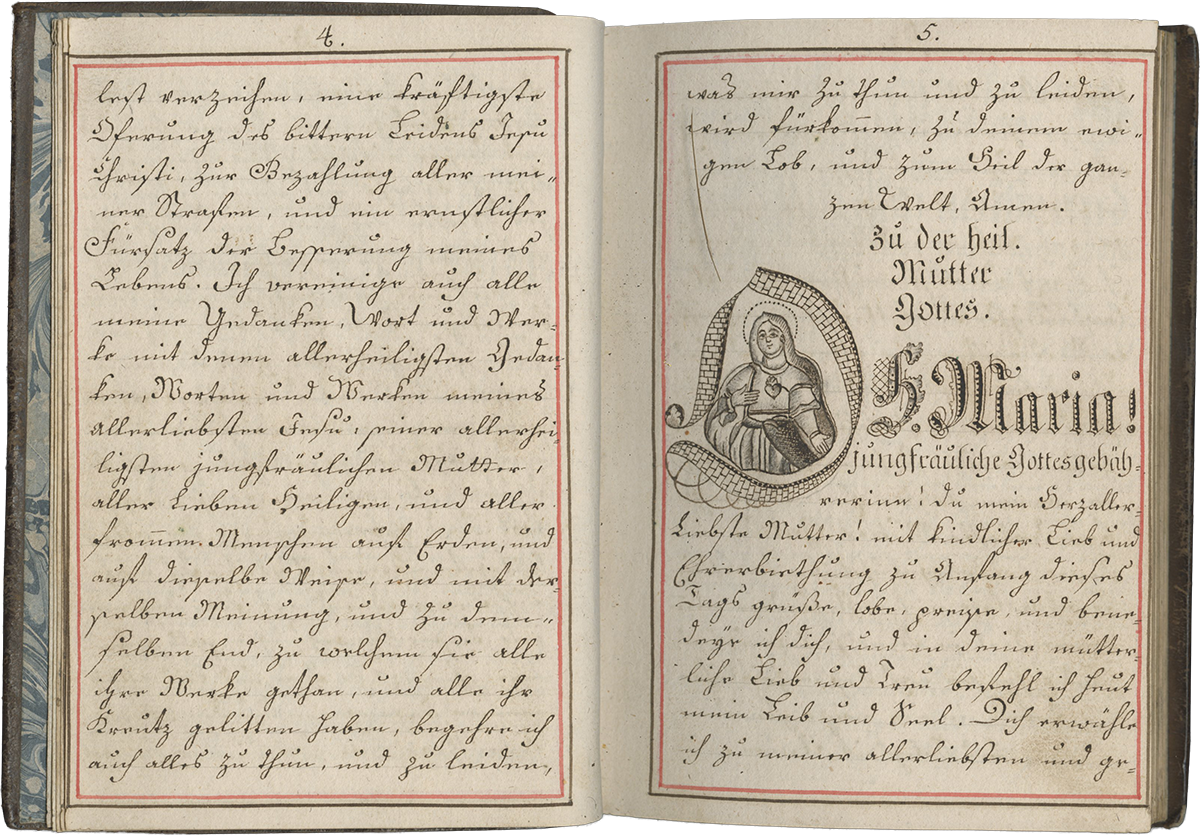 4.
lest verzeihen, eine kräftigste
Oferung des bittern Leidens Jesu
Christi, zur Bezahlung aller mei„
ner Strafen, und ein ernstlicher
Fürsatz der Besserung meines
Lebens. Ich vereinige auch alle
meine Gedanken, Wort und Wer-
ke mit denen allerheiligsten Gedan-
ken, Worten und Werken meines
allerliebsten Jesu, seiner allerhei-
ligsten jungfräulichen Mutter,
aller lieben Heiligen, und aller
frommen Menschen auf Erden, und
auf dieselbe Weise, und mit der-
selben Meinung, und zu dem„
selben End, zu welchem sie alle
ihre Werke gethan, und alle ihr
Kreutz gelitten haben, begehre ich
auch alles zu thun, und zu leiden,
5.
was mir zu thun und zu leiden,
wird fürkommen, zu deinem ewi„
gen Lob, und zum Heil der gan-
zen Welt, Amen.
Zu der heil.
Mutter
Gottes.
O H. Maria!
jungfräuliche Gottesgebäh-
rerinn! du mein Herzaller-
liebste Mutter! mit kindlicher Lieb und
Ehrerbiethung zu Anfang dieses
Tags grüße, lobe, preise, und bene-
deye ich dich, und in deine mütter-
liche Lieb und Treu befehl ich heut
mein Leib und Seel. Dich erwähle
ich zu meiner allerliebsten und ge-